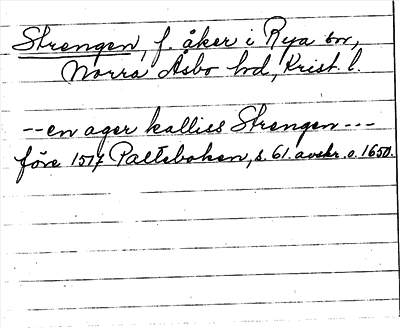 Strengen, f. åker i Rya sn,
Norra Åsbo hd, Krist. l.
--en ager kalliss Strengen---
före 1517 Palteboken, s. 61. avskr. o. 1650.